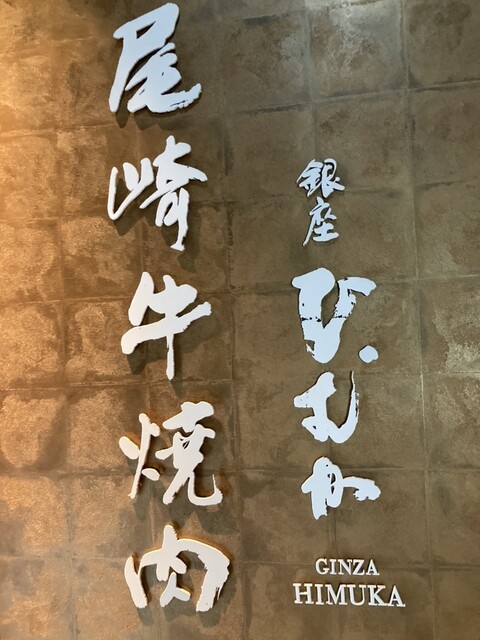 銀座
ひむか
GINZA
HIMUKA
尾崎牛焼肉